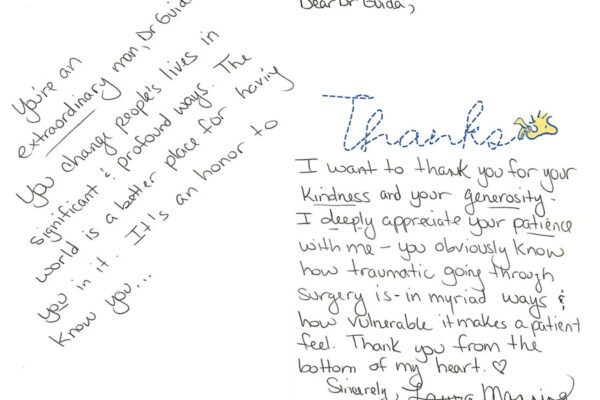 You're an
extraordinary man, Dr Guida
You change people's lives in
significant & profound ways. The
world is a better place for having
you in it. It's an honor to
know you...
Dear Dr Guida,
Thanks
I want to thank you for your
kindness and your generosity.
I deeply appreciate your patience
with me - you obviously know
how traumatic going through
surgery is - in myriad ways &
how vulnerable it makes a patient
feel. Thank you from the
bottom of my heart. ♡
Sincerely, Laura